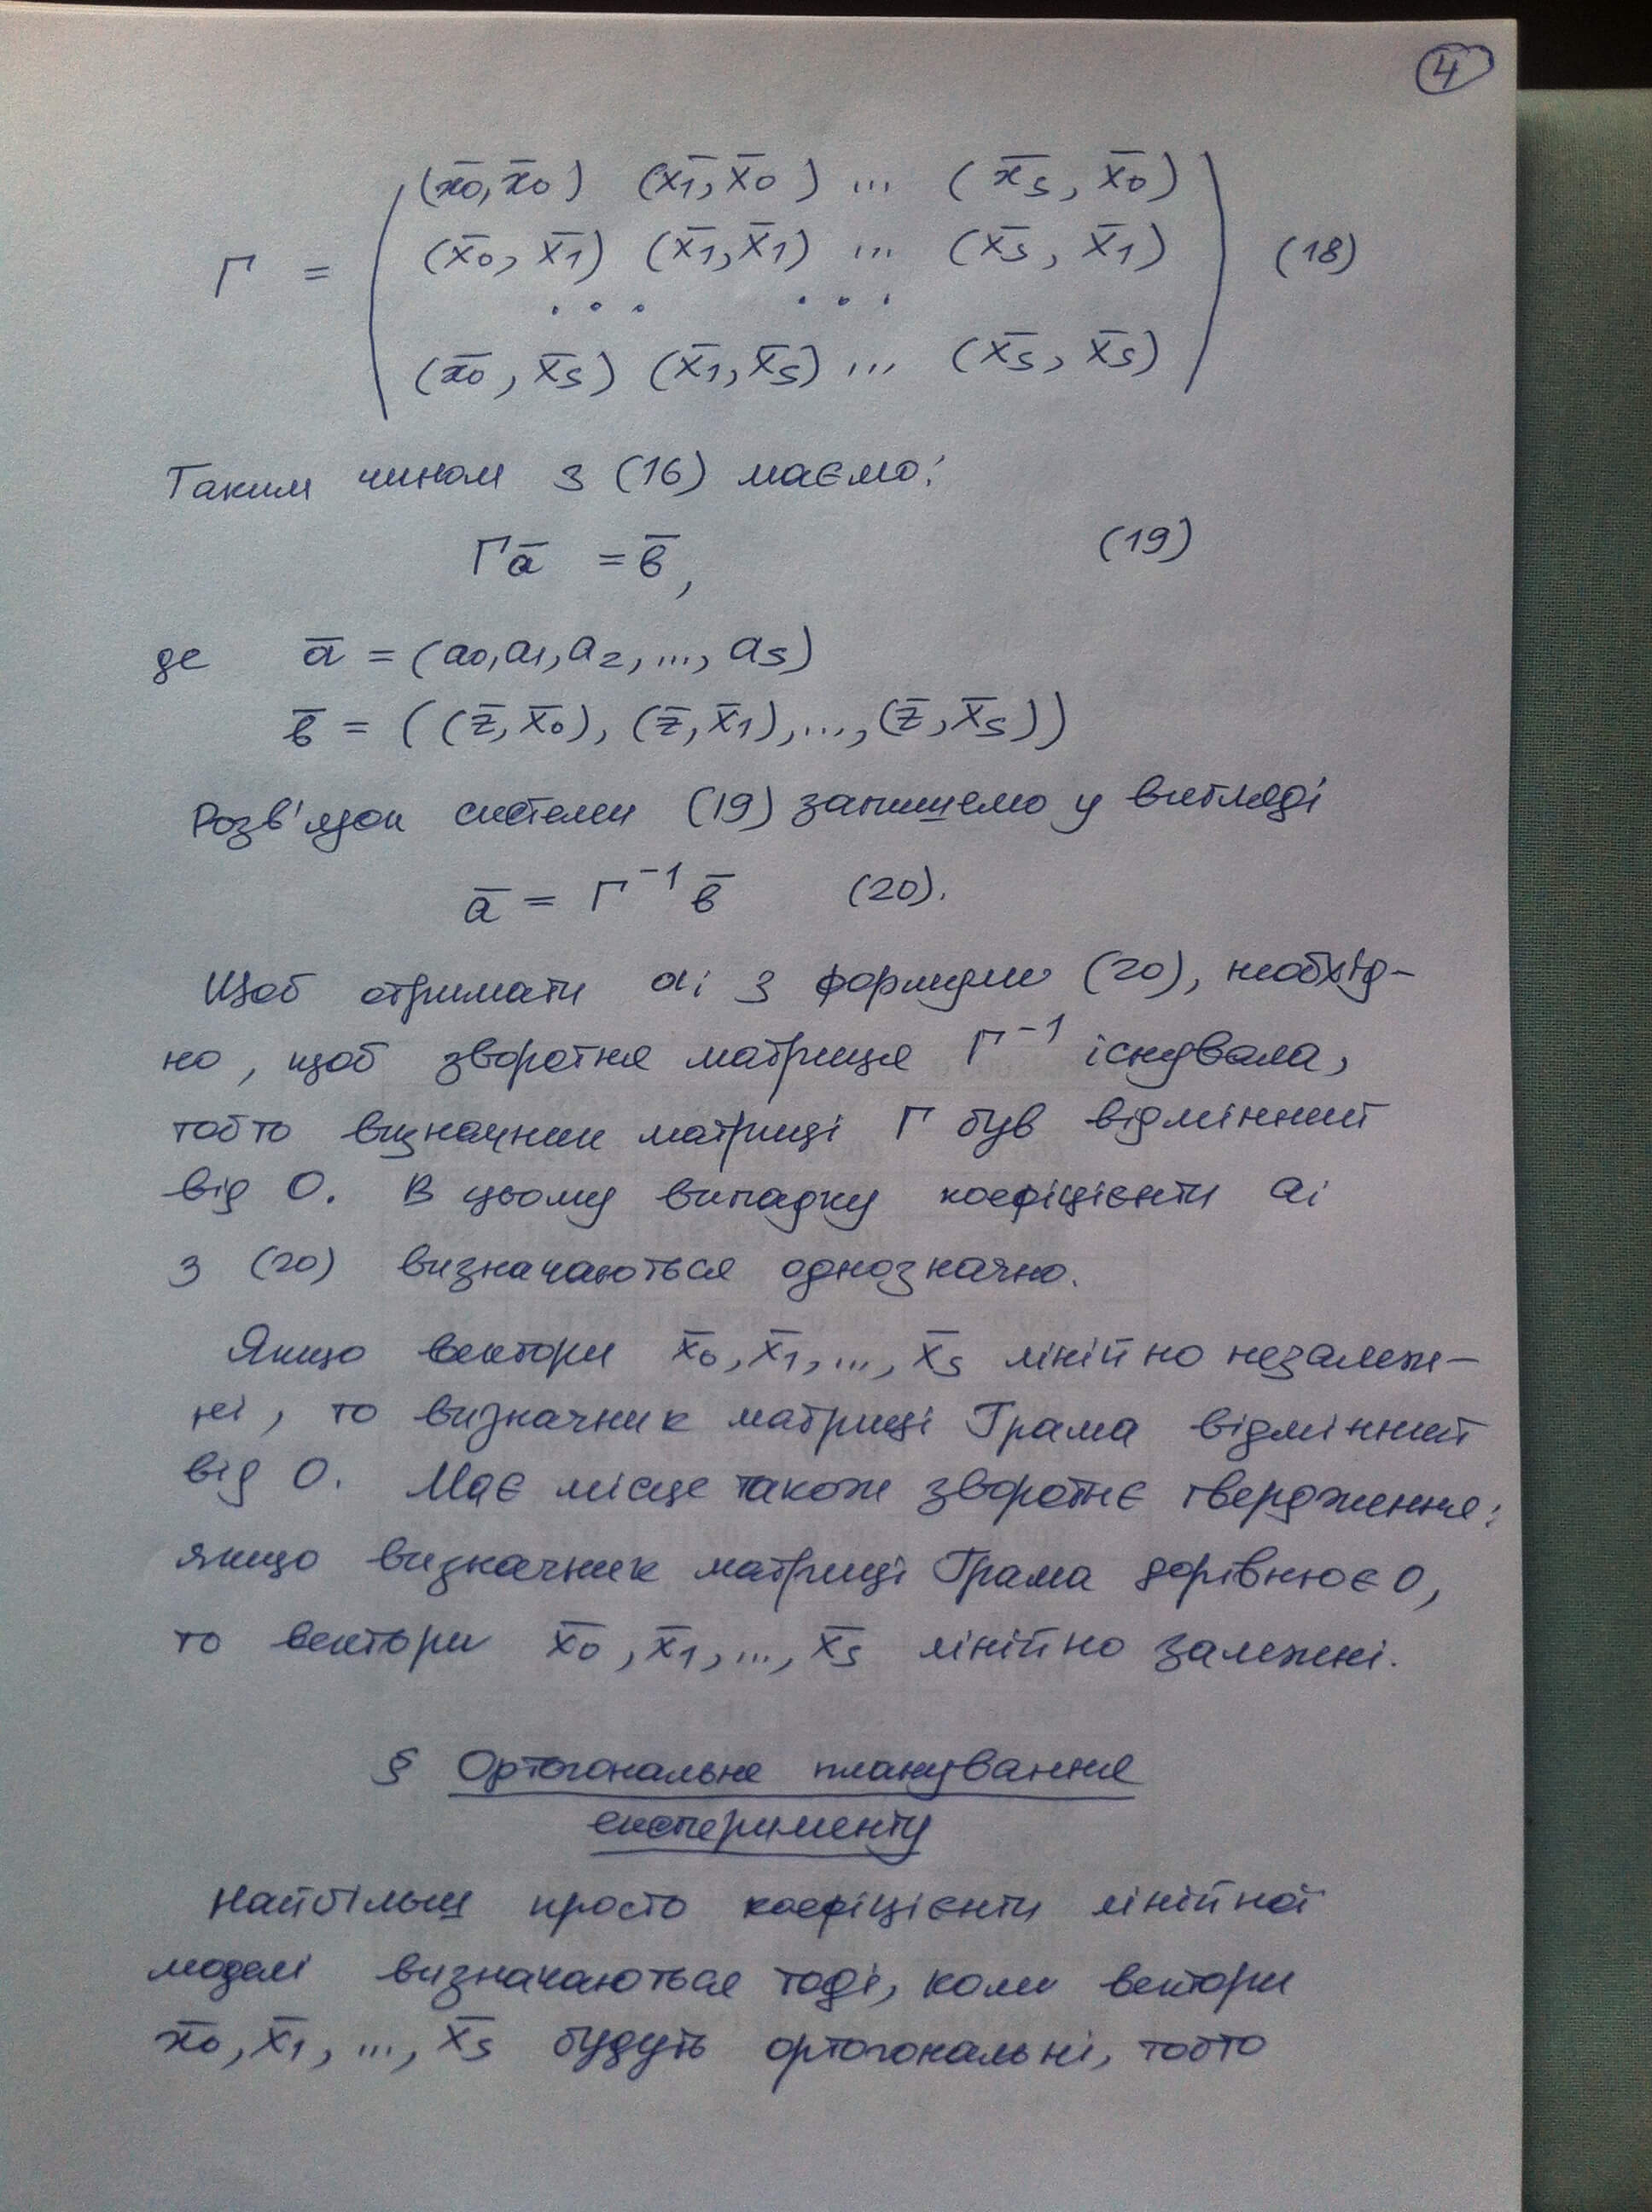 4
Γ = ( (x̄0, x̄0) (x̄1, x̄0) ... (x̄s, x̄0)
(x̄0, x̄1) (x̄1, x̄1) ... (x̄s, x̄1)
. . . . . .
(x̄0, x̄s) (x̄1, x̄s) ... (x̄s, x̄s) ) (18)
Таким чином з (16) маємо:
Γā = b̄, (19)
де ā = (a0, a1, a2, ..., as)
b̄ = ((z̄, x̄0), (z̄, x̄1), ..., (z̄, x̄s))
Розв'язок системи (19) запишемо у вигляді
ā = Γ⁻¹ b̄ (20).
Щоб отримати ai з формули (20), необхід-
но, щоб зворотня матриця Γ⁻¹ існувала,
тобто визначник матриці Γ був відмінний
від 0. В цьому випадку коефіцієнти ai
з (20) визначаються однозначно.
Якщо вектори x̄0, x̄1, ..., x̄s лінійно незалеж-
ні, то визначник матриці Грама відмінний
від 0. Має місце також зворотнє твердження:
якщо визначник матриці Грама дорівнює 0,
то вектори x̄0, x̄1, ..., x̄s лінійно залежні.
§ Ортогональне планування
експерименту
Найбільш просто коефіцієнти лінійної
моделі визначаються тоді, коли вектори
x̄0, x̄1, ..., x̄s будуть ортогональні, тобто